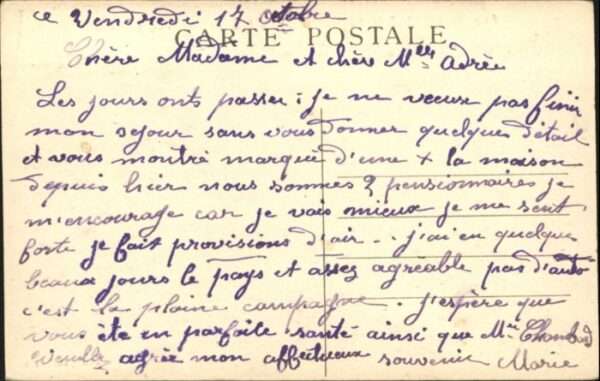 ce Vendredi 17 Octobre
CARTE POSTALE
Chère Madame et chère Melle Adrée
Les jours onts passer ; je ne veux pas finir
mon sejour sans vous donner quelques détail
et vous montré marque d'une + la maison
depuis hier nous sommes 2 pensionnaires je
m'encourage car je vais mieux je me sent
forte je fait provisions d'air - . j'ai en quelque
beaux jours le pays et assez agréable pas d'auto
c'est la pleine campagne . j'espère que
vous ête en parfaite santé ainsi que Mr
Veuillez agrée mon affectueux souvenir Marie